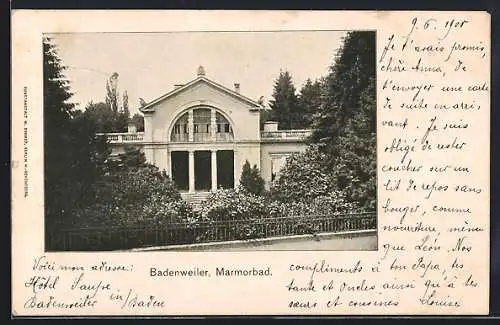 9. 6. 1905
Je t'avais promis,
chère Anna, de
t'envoyer une carte
de suite en arri-
vant. Je suis
obligé de rester
coucher sur un
lit de repos sans
bouger, comme
nourriture, même
que Léon. Nos
compliments à ton Papa, tes
tante et Oncles ainsi qu'à tes
sœurs et cousines Louise
Badenweiler, Marmorbad.
Voici mon adresse:
Hôtel Saupe
Badenweiler in/Baden